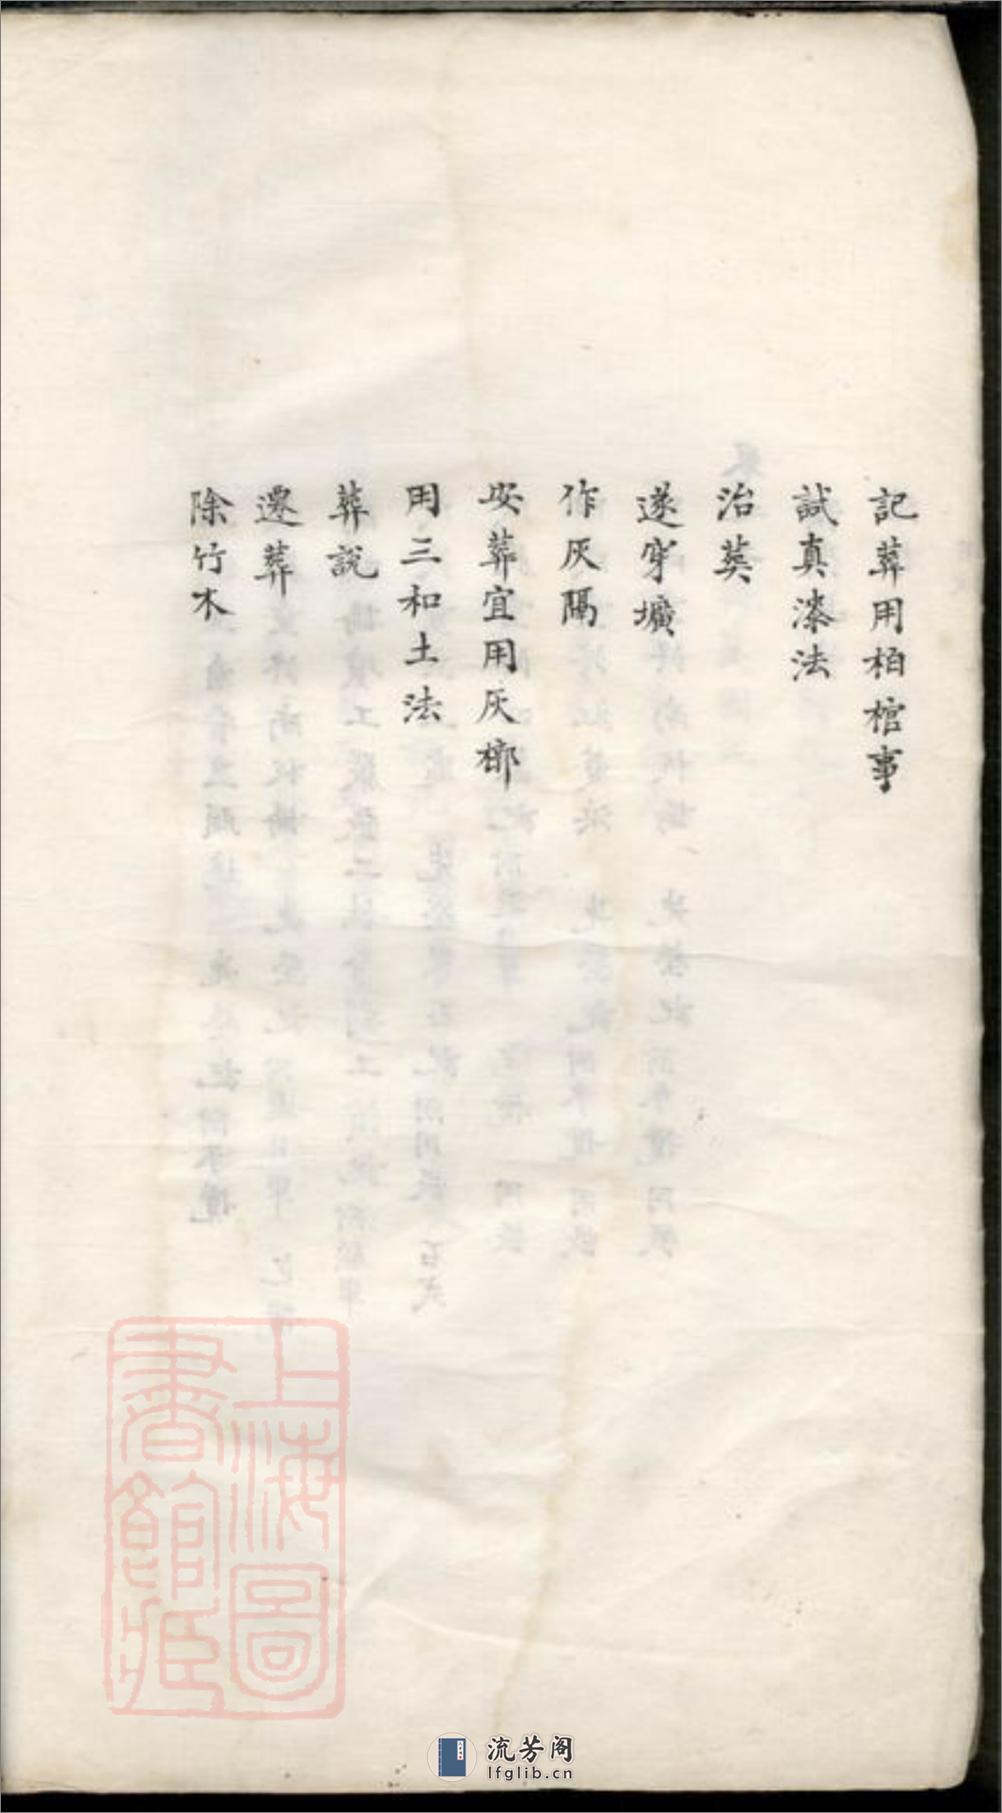 記葬用柏棺事
試真漆法
治葬
遂穿壙
作灰隔
安葬宜用灰槨
用三和土法
葬說
遷葬
除竹木
上海圖
書館藏
流芳阁
lfglib.cn